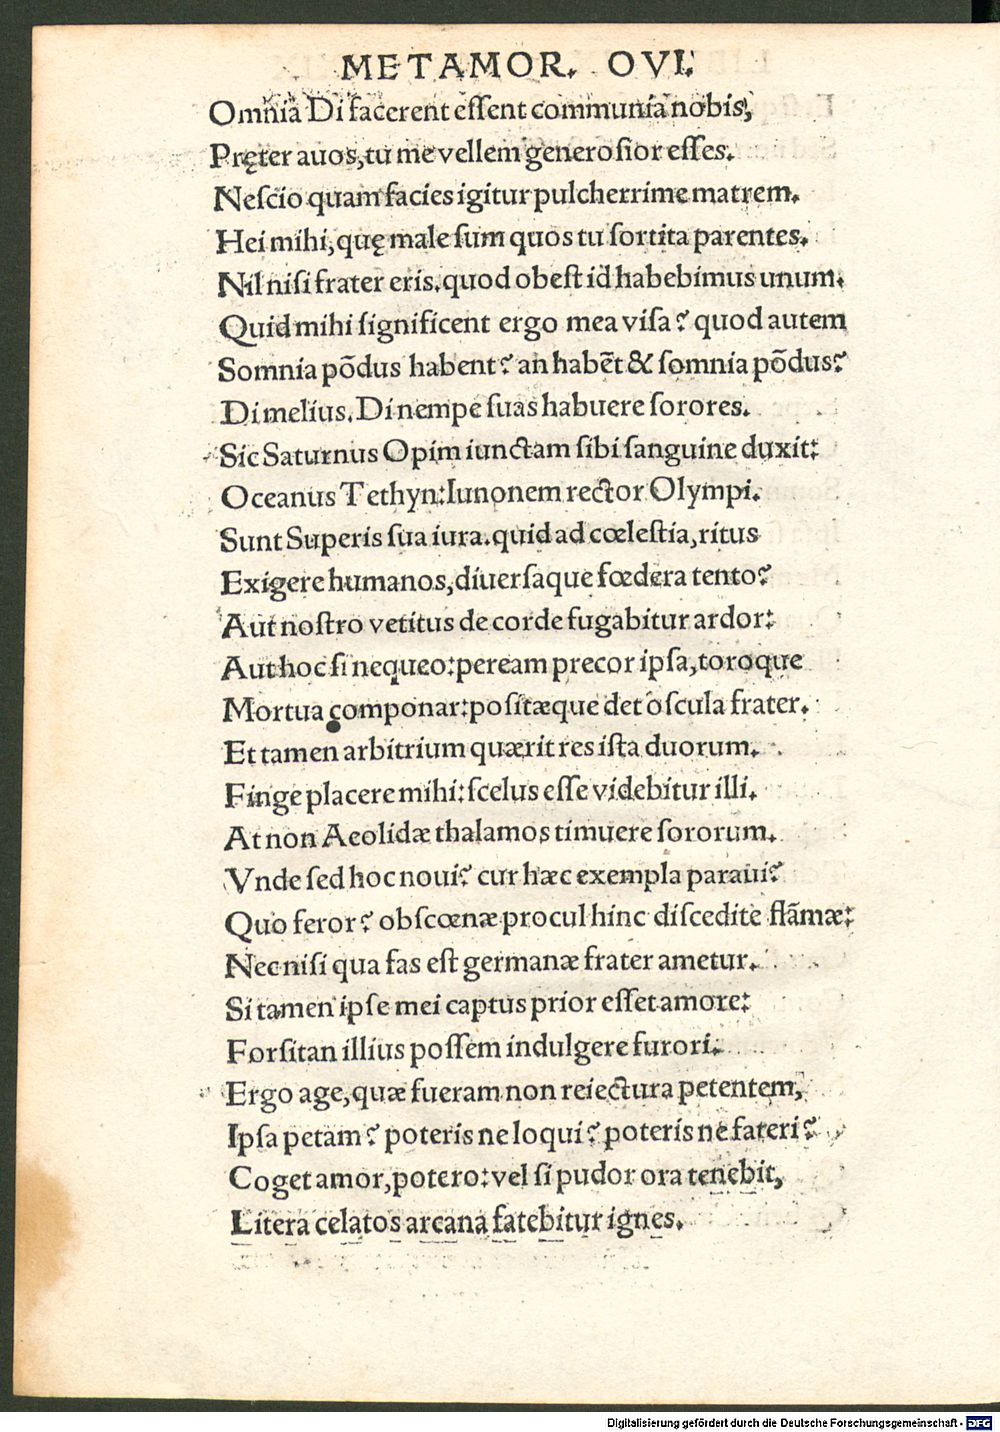 METAMOR. OVI.
Omnia Di facerent essent communia nobis,
Pręter auos, tu me vellem generosior esses.
Nescio quam facies igitur pulcherrime matrem.
Hei mihi, quę male sum quos tu sortita parentes.
Nil nisi frater eris. quod obest id habebimus unum.
Quid mihi significent ergo mea visa? quod autem
Somnia põdus habent? an habẽt & somnia põdus?
Di melius. Di nempe suas habuere sorores.
Sic Saturnus Opim iunctam sibi sanguine duxit:
Oceanus Tethyn: Iunonem rector Olympi.
Sunt Superis sua iura. quid ad cœlestia, ritus
Exigere humanos, diuersaque fœdera tento?
Aut nostro vetitus de corde fugabitur ardor:
Aut hoc si nequeo: peream precor ipsa, toroque
Mortua componar: positæque det oscula frater.
Et tamen arbitrium quærit res ista duorum.
Finge placere mihi: scelus esse videbitur illi.
At non Aeolidæ thalamos timuere sororum.
Vnde sed hoc noui? cur hæc exempla paraui?
Quo feror? obscœnæ procul hinc discedite flãmæ:
Nec nisi qua fas est germanæ frater ametur.
Si tamen ipse mei captus prior esset amore:
Forsitan illius possem indulgere furori.
Ergo age, quæ fueram non reiectura petentem,
Ipsa petam? poteris ne loqui? poteris ne fateri?
Coget amor, potero: vel si pudor ora tenebit,
Litera celatos arcana fatebitur ignes.
Digitalisierung gefördert durch die Deutsche Forschungsgemeinschaft - DFG